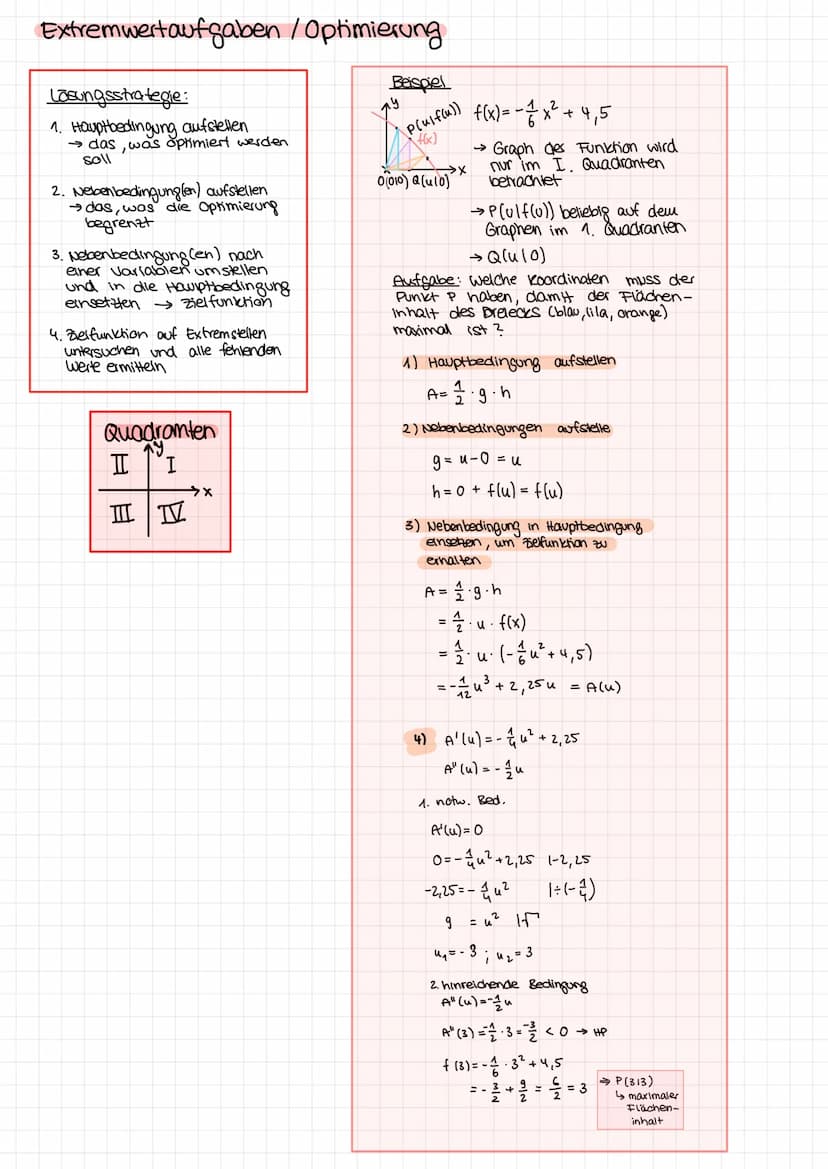 Extremwertaufgaben / Optimierung
Lösungsstrategie:
1. Hauptbedingung aufstellen
→ das, was optimiert werden
soll
2. Nebenbedingung(en) aufstellen
→ das, was die Optimierung
begrenzt
3. Nebenbedingung(en) nach
einer Variablen umstellen
und in die Hauptbedingung
einsetzten → Zielfunktion
4. Zielfunktion auf Extremstellen
untersuchen und alle fehlenden
Werte ermitteln
Quadranten
y
II I
x
III IV
Beispiel
y
P(u|f(u))
f(x)
x
O(0|0) Q(u|0)
f(x) = -1/6 x² + 4,5
→ Graph der Funktion wird
nur im I. Quadranten
betrachtet
→ P(u|f(u)) beliebig auf dem
Graphen im 1. Quadranten
→ Q(u|0)
Aufgabe: Welche Koordinaten muss der
Punkt P haben, damit der Flächen-
inhalt des Dreiecks (blau, lila, orange)
maximal ist?
1) Hauptbedingung aufstellen
A = 1/2 · g · h
2) Nebenbedingungen aufstelle
g = u-0 = u
h = 0 + f(u) = f(u)
3) Nebenbedingung in Hauptbedingung
einsetzen, um Zielfunktion zu
erhalten
A = 1/2 · g · h
= 1/2 · u · f(x)
= 1/2 · u · (-1/6 u² + 4,5)
= -1/12 u³ + 2,25u = A(u)
4) A'(u) = -1/4 u² + 2,25
A''(u) = -1/2 u
1. notw. Bed.
A'(u) = 0
0 = -1/4 u² + 2,25 |-2,25
-2,25 = -1/4 u² |÷(-1/4)
9 = u² |√
u₁ = -3 ; u₂ = 3
2. hinreichende Bedingung
A''(u) = -1/2 u
A''(3) = -1/2 · 3 = -3/2 < 0 → HP
f(3) = -1/6 · 3² + 4,5
= -3/2 + 9/2 = 6/2 = 3
⇒ P(3|3)
↳ maximaler
Flächen-
inhalt